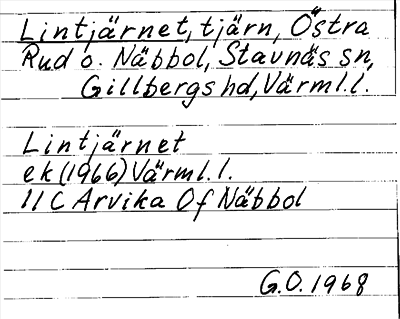 Lintjärnet, tjärn, Östra
Rud o. Näbbol, Stavnäs sn,
Gillbergs hd, Värml.l.
Lintjärnet
ek (1966) Värml.l.
11 C Arvika Of Näbbol
G.O. 1968